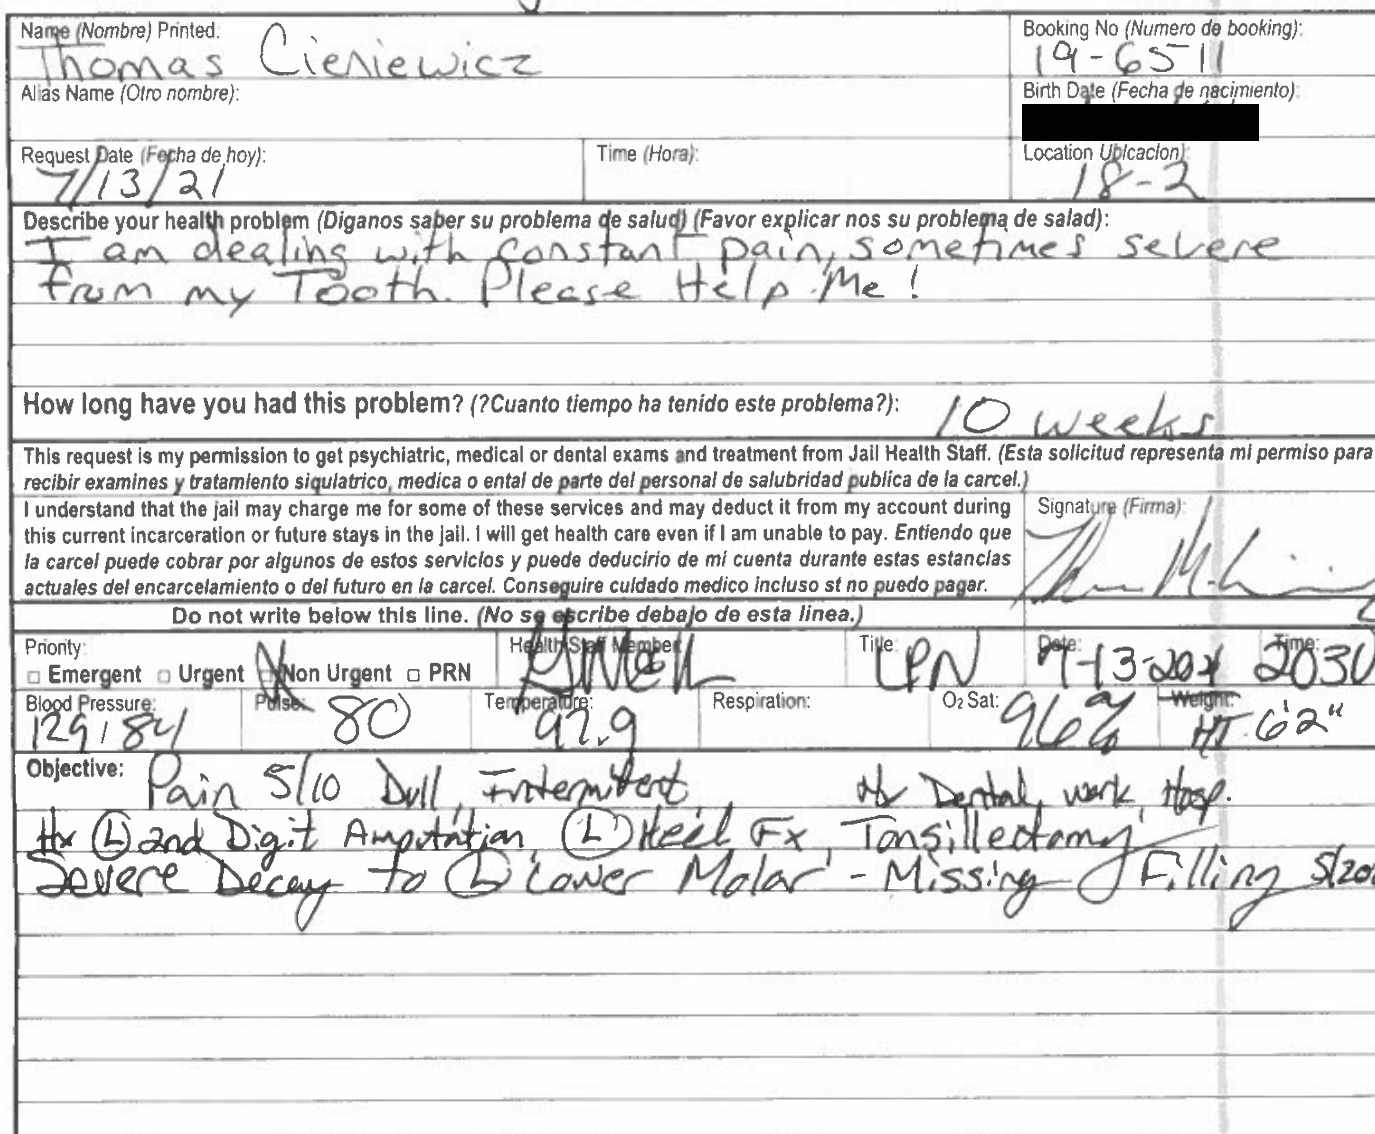 Name (Nombre) Printed:
Thomas Cieniewicz
Booking No (Numero de booking):
19-6511
Alias Name (Otro nombre):
Birth Date (Fecha de nacimiento):
Request Date (Fecha de hoy):
7/13/21
Time (Hora):
Location Ubicacion):
18-2
Describe your health problem (Diganos saber su problema de salud) (Favor explicar nos su problema de salad):
I am dealing with constant pain, sometimes severe
from my Tooth. Please Help Me!
How long have you had this problem? (?Cuanto tiempo ha tenido este problema?): 10 weeks
This request is my permission to get psychiatric, medical or dental exams and treatment from Jail Health Staff. (Esta solicitud representa mi permiso para
recibir examines y tratamiento siqulatrico, medica o ental de parte del personal de salubridad publica de la carcel.)
I understand that the jail may charge me for some of these services and may deduct it from my account during
this current incarceration or future stays in the jail. I will get health care even if I am unable to pay. Entiendo que
la carcel puede cobrar por algunos de estos servicios y puede deducirio de mi cuenta durante estas estancias
actuales del encarcelamiento o del futuro en la carcel. Conseguire culdado medico incluso st no puedo pagar.
Signature (Firma):
Do not write below this line. (No se escribe debajo de esta linea.)
Priority:
Emergent Urgent Non Urgent PRN
Health Staff Member
Title: LPN
Date: 7-13-2021
Time: 2030
Blood Pressure: 129/84
Pulse: 80
Temperature: 97.9
Respiration:
O2 Sat: 96%
Weight: HT 6'2"
Objective: Pain 5/10 Dull, Intermitent Hx Dental, work, Hosp.
Hx (L) 2nd Digit Amputation, (L) Heel Fx, Tonsillectomy
Severe Decay to (L) Lower Molar - Missing Filling